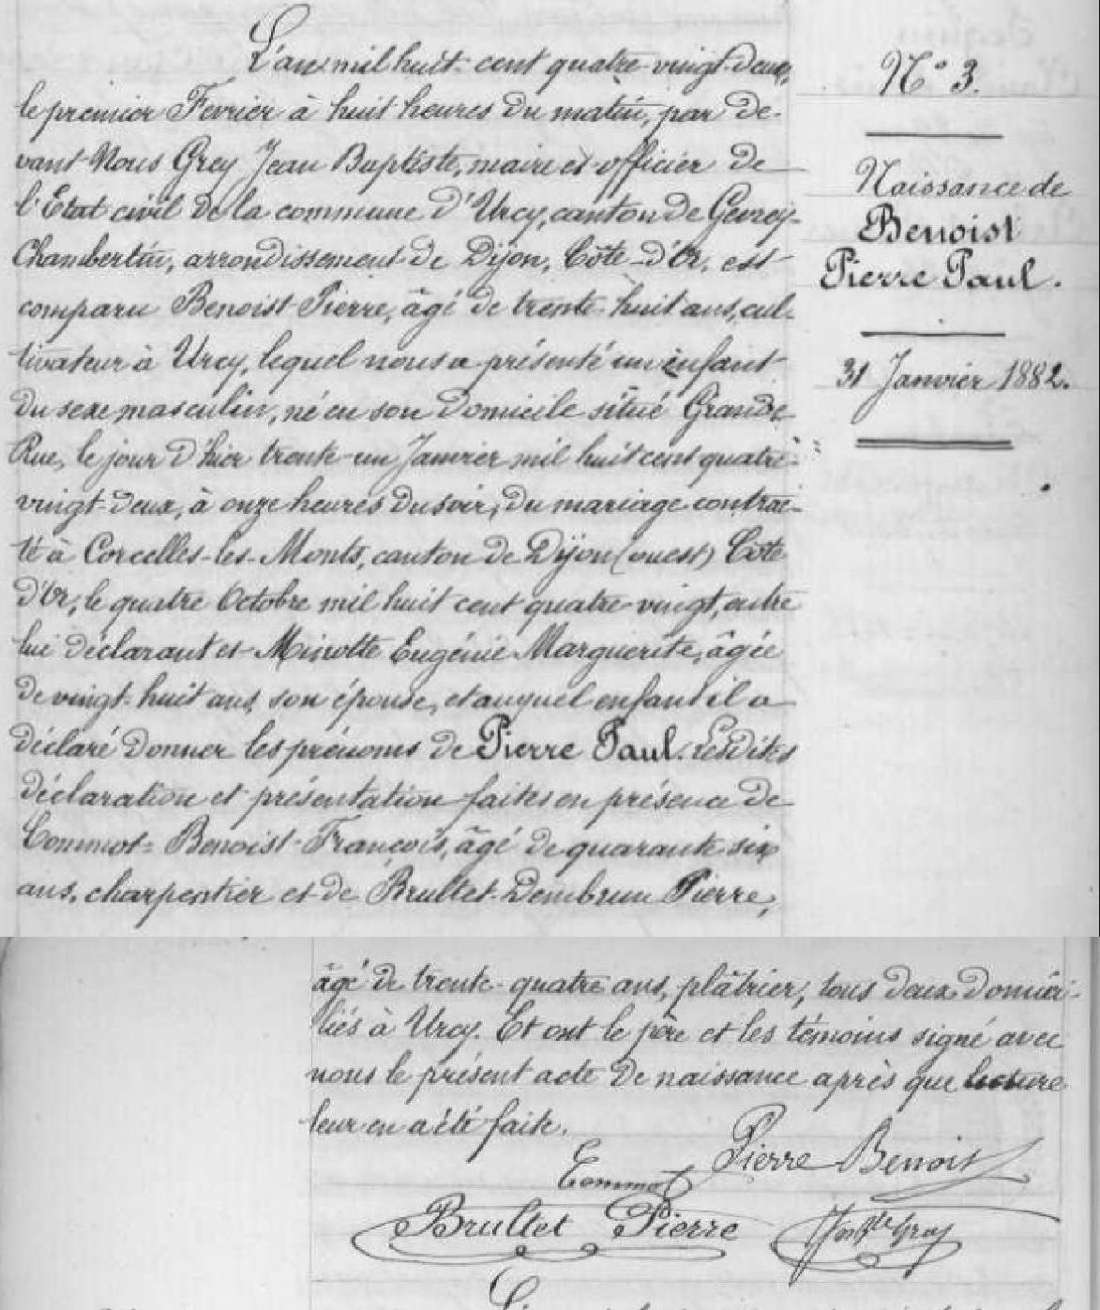 N° 3.
Naissance de
Benoist
Pierre Paul.
31 Janvier 1882.
L'an mil huit cent quatre-vingt-deux,
le premier Fevrier à huit heures du matin, par de-
vant Nous Grey Jean Baptiste, maire et officier de
l'Etat civil de la commune d'Urcy, canton de Gevrey-
Chambertin, arrondissement de Dijon, Côte-d'Or, est
comparu Benoist Pierre, âgé de trente-huit ans, cul-
tivateur à Urcy, lequel nous a présenté un enfant
du sexe masculin, né en son domicile situé Grande
Rue, le jour d'hier trente-un Janvier mil huit cent quatre-
vingt-deux, à onze heures du soir, du mariage contrac-
té à Corcelles-les-Monts, canton de Dijon (ouest) Côte
d'Or, le quatre Octobre mil huit cent quatre-vingt, entre
lui déclarant et Minotte Eugénie Marguerite, âgée
de vingt-huit ans, son épouse, et auquel enfant il a
déclaré donner les prénoms de Pierre Paul. Lesdites
déclaration et présentation faites en présence de
Commot-Benoist-Francois, âgé de quarante six
ans, charpentier et de Brullet-Dembrun Pierre,
âgé de trente-quatre ans, plâtrier, tous deux domici-
liés à Urcy. Et ont le père et les témoins signé avec
nous le présent acte de naissance après que lecture
leur en a été faite.
Pierre Benoist
Commot
Brullet Pierre
Jn Bte Grey